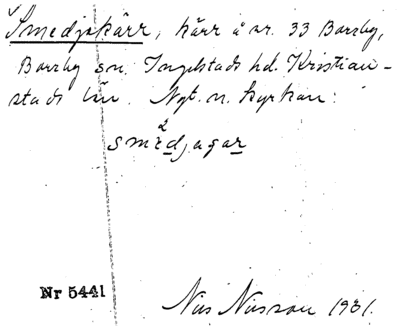 Smedjekärr, kärr å nr. 33 Borrby,
Borrby sn. Ingelstads hd. Kristian-
stads län. Nyt. n. kyrkan:
Nr 5441
Nils Nilsson 1931.